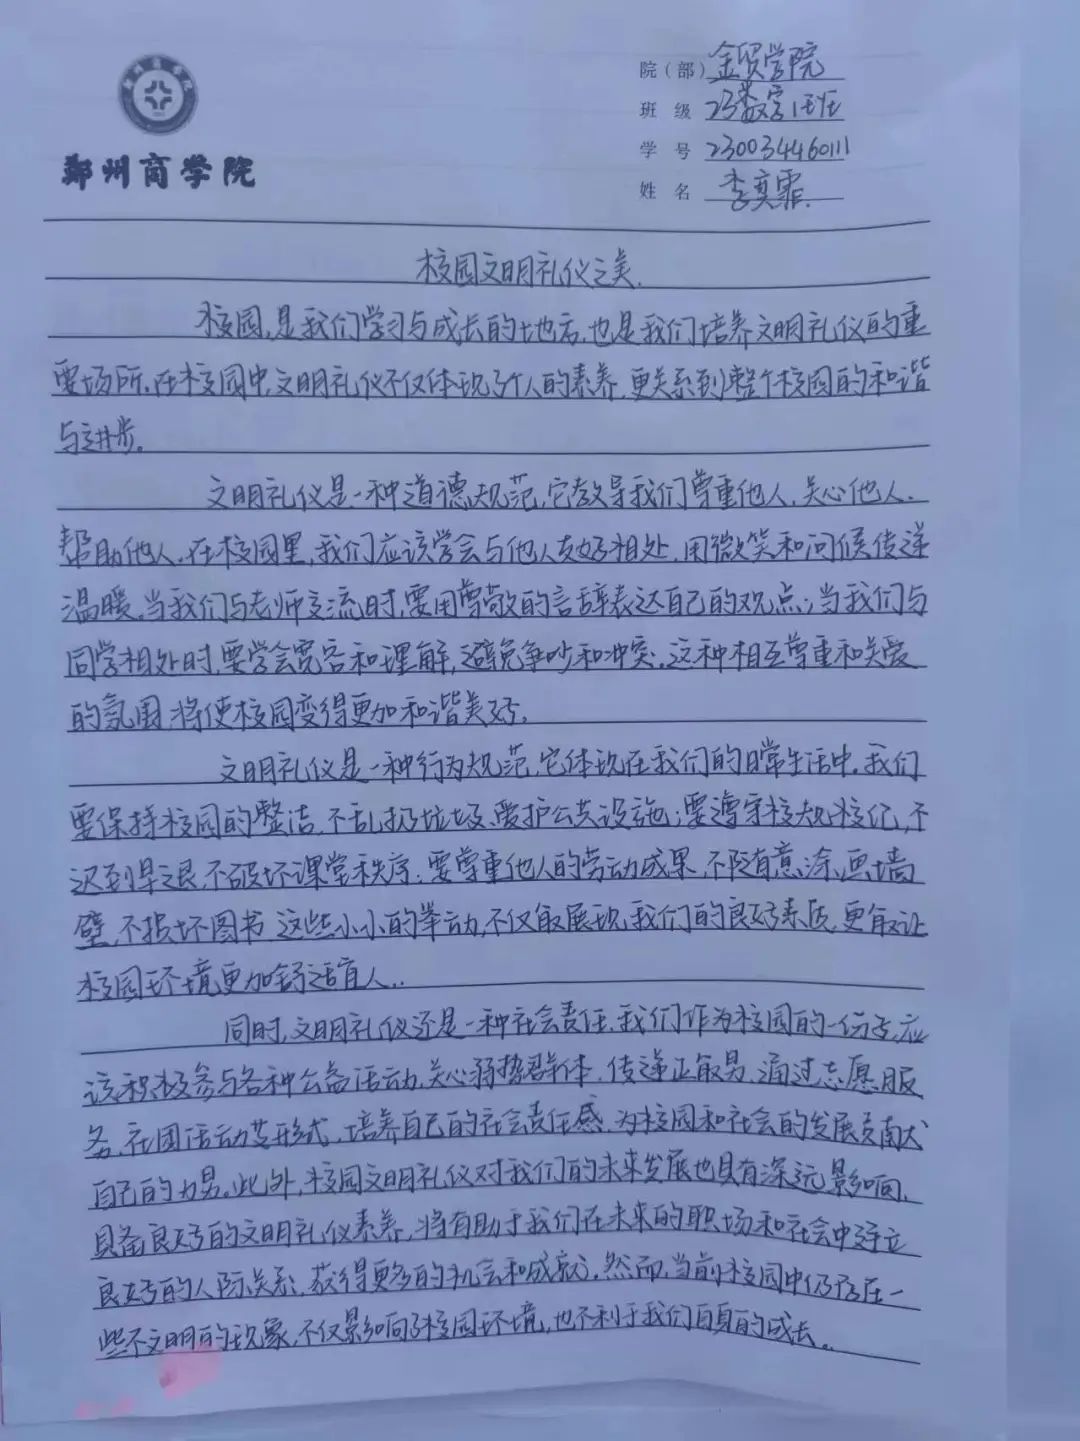 郑州商学院
院（部）金贸学院
班 级 23数字1班
学 号 230034460111
姓 名 李奕霏.
校园文明礼仪之美.
校园,是我们学习与成长的地方,也是我们培养文明礼仪的重
要场所.在校园中,文明礼仪不仅体现了个人的素养,更关系到整个校园的和谐
与进步。
文明礼仪是一种道德规范,它教导我们尊重他人,关心他人.
帮助他人.在校园里,我们应该学会与他人友好相处,用微笑和问候传递
温暖.当我们与老师交流时,要用尊敬的言辞表达自己的观点;当我们与
同学相处时,要学会宽容和理解,避免争吵和冲突.这种相互尊重和关爱
的氛围,将使校园变得更加和谐美好.
文明礼仪是一种行为规范,它体现在我们的日常生活中.我们
要保持校园的整洁,不乱扔垃圾,爱护公共设施;要遵守校规校纪,不
迟到早退,不破坏课堂秩序;要尊重他人的劳动成果,不随意涂画墙
壁,不损坏图书.这些小小的举动,不仅能展现我们的良好素质,更能让
校园环境更加舒适宜人..
同时,文明礼仪还是一种社会责任.我们作为校园的一份子,应
该积极参与各种公益活动,关心弱势群体,传递正能量.通过志愿服
务,社团活动等形式,培养自己的社会责任感,为校园和社会的发展贡献
自己的力量.此外,校园文明礼仪对我们的未来发展也具有深远影响,
具备良好的文明礼仪素养,将有助于我们在未来的职场和社会中建立
良好的人际关系,获得更多的机会和成就.然而,当前校园中仍存在一
些不文明的现象,不仅影响了校园环境,也不利于我们自身的成长..